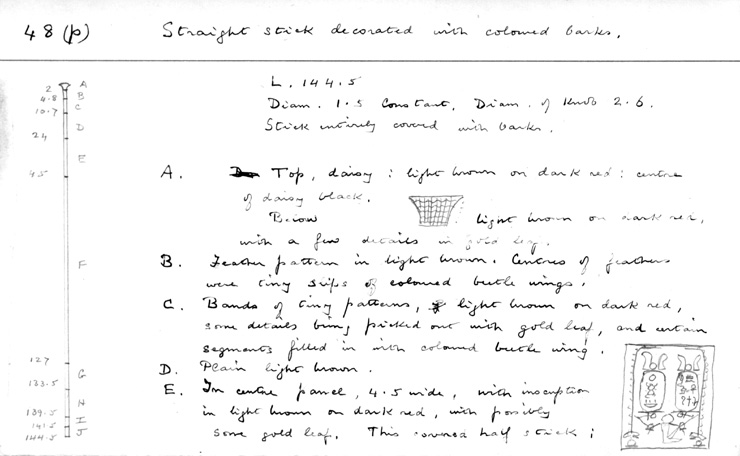 48 (p)    Straight stick decorated with coloured barks.
L. 144.5
Diam. 1.5 Constant, Diam. of Knob 2.6.
Stick entirely covered with barks.
A. Top, daisy : light brown on dark red : centre
of daisy black.
Below light brown on dark red,
with a few details in gold leaf.
B. Feather pattern in light brown. Centres of feathers
were tiny strips of coloured beetle wings.
C. Bands of tiny patterns, light brown on dark red,
some details being picked out with gold leaf, and certain
segments filled in with coloured beetle wing.
D. Plain light brown.
E. In centre panel, 4.5 wide, with inscription
in light brown on dark red, with possibly
some gold leaf. This covered half stick ;
2 A
4.8 B
10.7 C
24 D
45 E
F
127
G
133.5
H
139.5
I
141.5
J
144.5